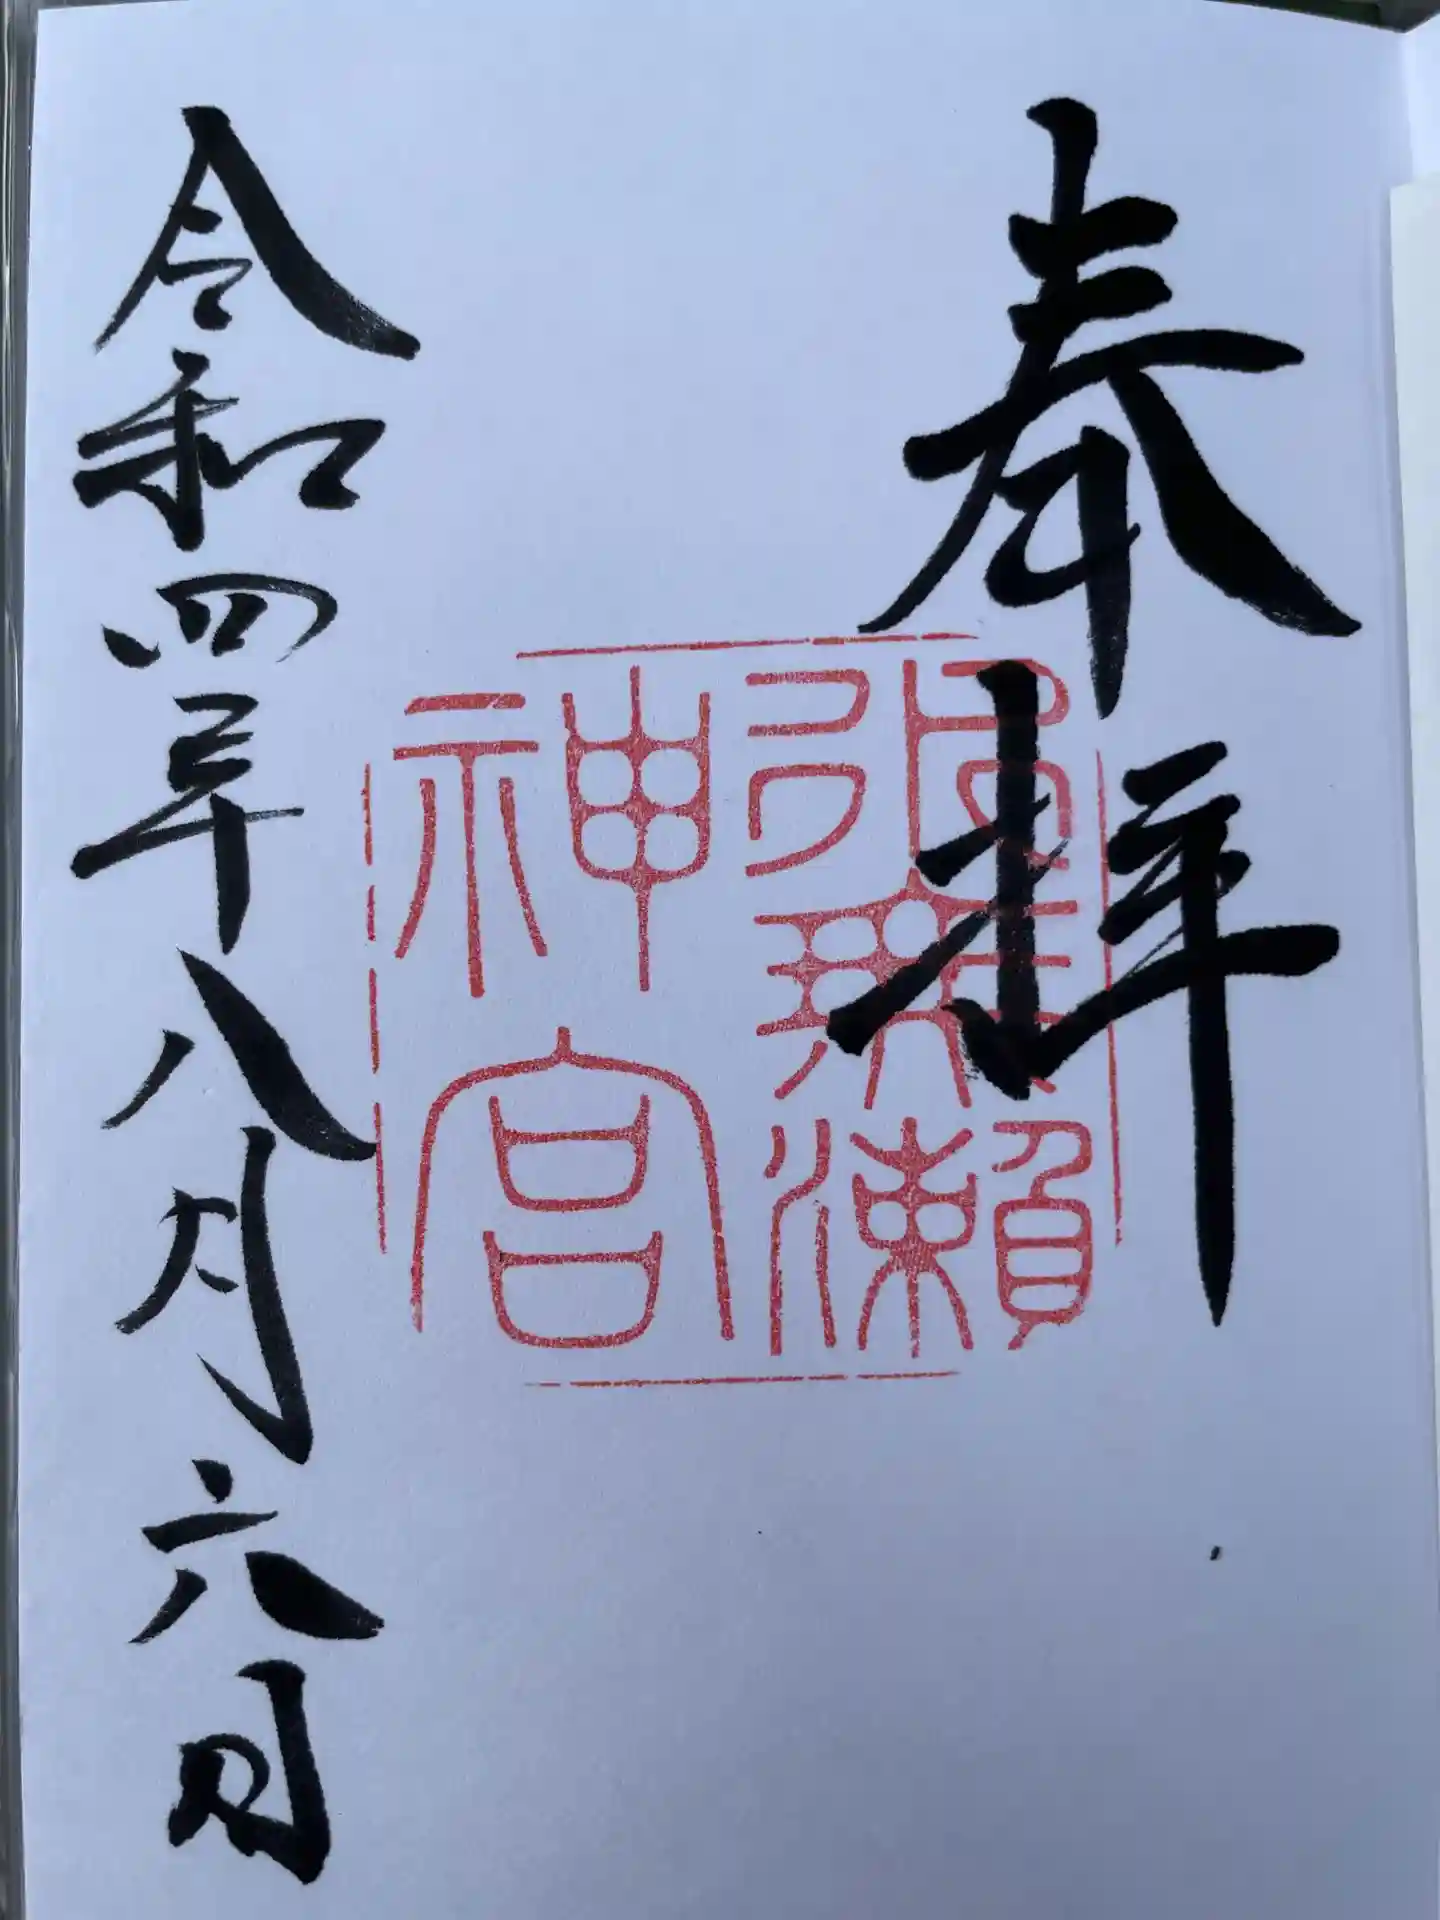 奉拝
水無瀨
神宮
令和四年八月六日